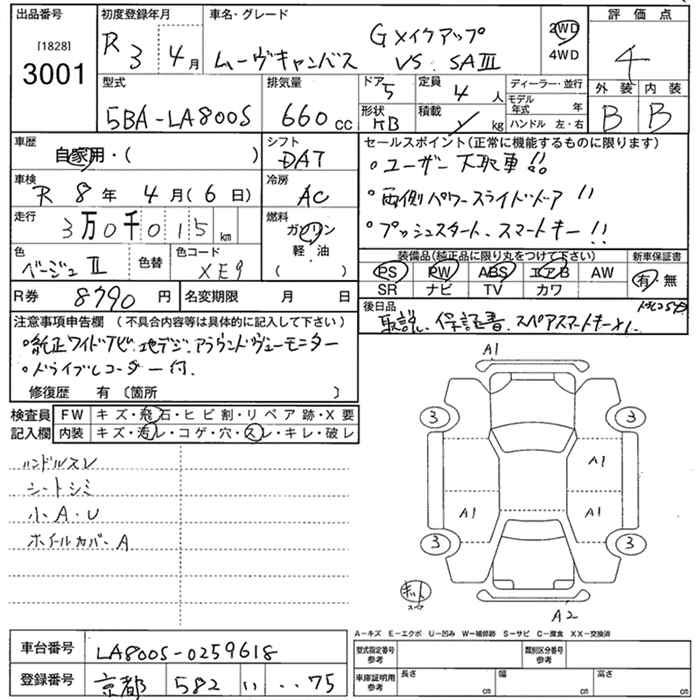 出品番号 初度登録年月 車名・グレード 評価点
[1828]
3001
R 3年 4月
ムーヴキャンバス
Gメイクアップ
VS SAⅢ
2WD
4WD
4
型式 排気量 ドア 定員 ディーラー・並行 外装 内装
5BA-LA800S 660cc 5 4人
モデル年式 年
形状 積載 ハンドル 左・右
HB kg
B B
車歴 自家用・( )
シフト DAT
車検 R 8年 4月(6日)
冷房 AC
走行 3万0千015km
燃料 ガソリン
軽・油
( )
色 ベージュⅡ 色替 色コード XE9
R券 8790円 名変期限 月 日
セールスポイント(正常に機能するものに限ります)
・ユーザー下取車!!
・両側パワースライドドア!!
・プッシュスタート、スマートキー!!
装備品(純正品に限り丸をつけて下さい) 新車保証書
PS PW ABS エアB AW 有・無
SR ナビ TV カワ
後日品
取説、保証書、スペアスマートキー×1.
注意事項申告欄 (不具合内容等は具体的に記入して下さい)
・純正ワイドナビ、地デジ、アラウンドヴューモニター
・ドライブレコーダー付.
修復歴 有 〔箇所 〕
検査員 FW キズ・飛石・ヒビ割・リペア跡・X要
記入欄 内装 キズ・汚レ・コゲ・穴・スレ・キレ・破レ
ハンドルスレ
シートシミ
小A・U
ホイールカバーA
A1
3 3
A1
A1 A1
3 3
キット
スペア
A2
A-キズ E-エクボ U-凹み W-補修跡 S-サビ C-腐食 XX-交換済
車台番号 LA800S-0259618
登録番号 京都 582 い ・・75
型式指定番号 参考 類別区分番号 参考
車庫証明用 参考 長さ cm 幅 cm 高さ cm